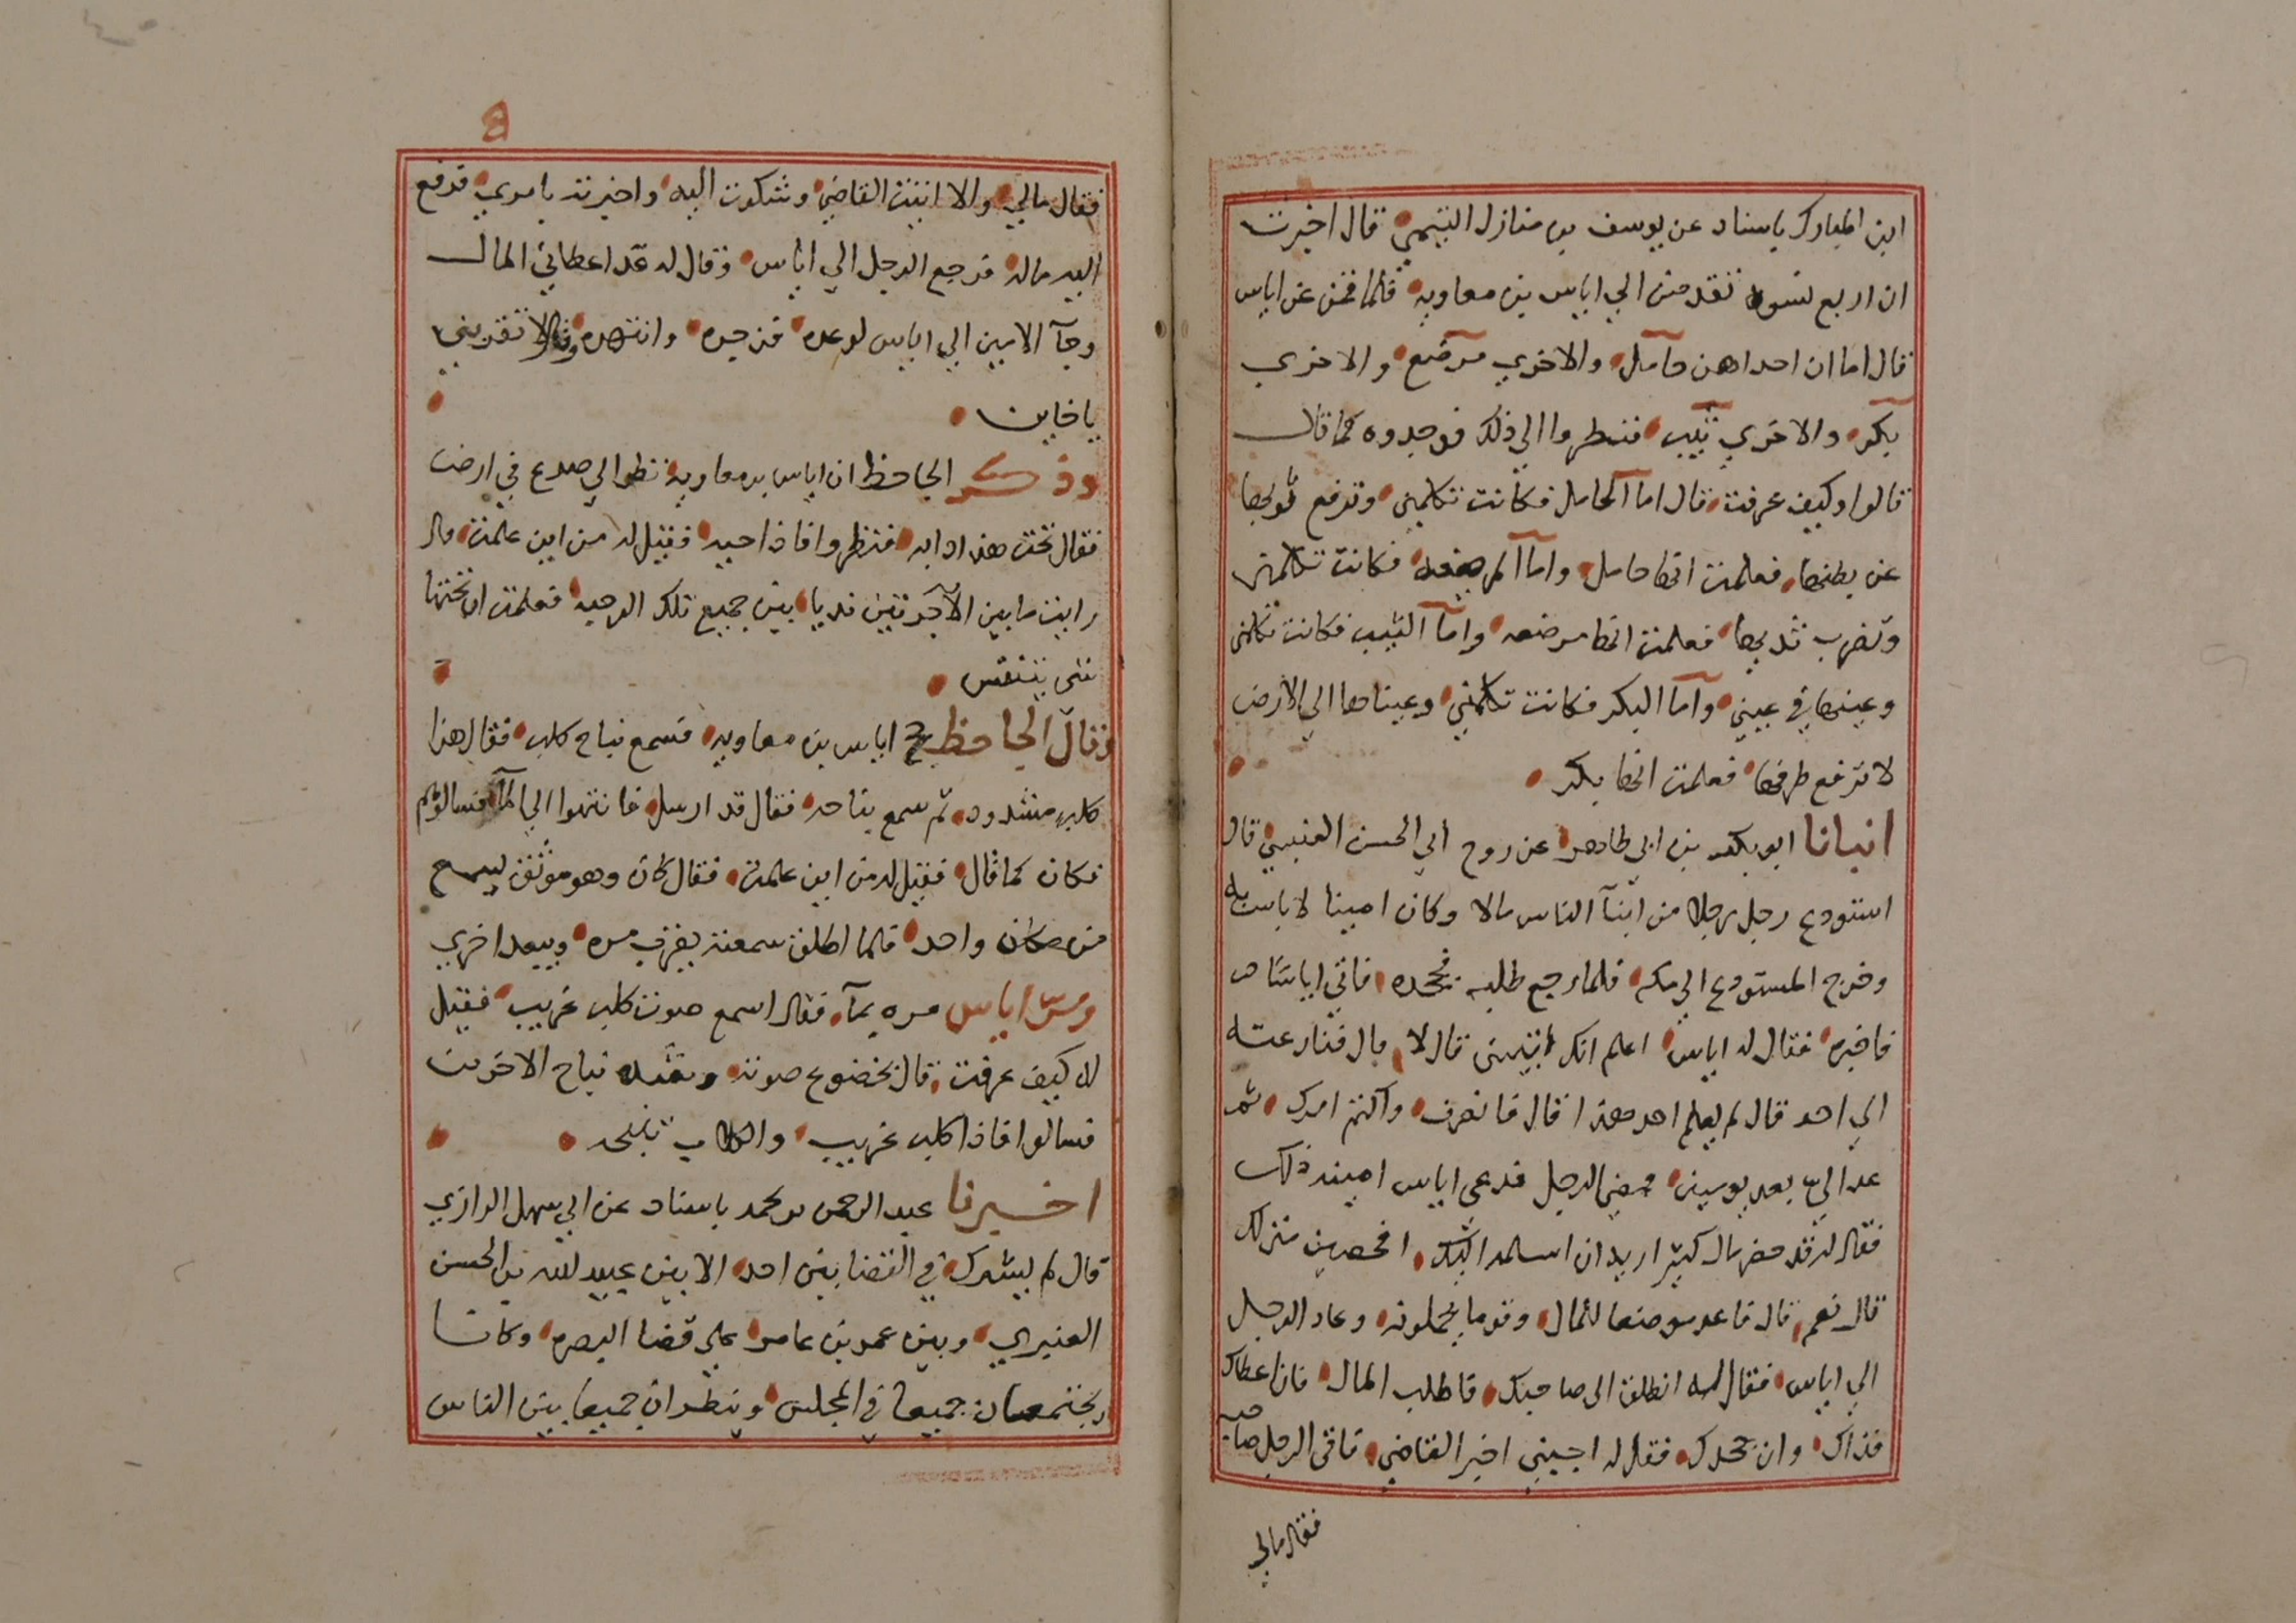 ابن المبارك باسناد عن يوسف بن منازل التيمي قال اخبرت
ان اربع نسوة تقدمن الي اياس بن معاوية فلما قمن عن اياس
قال اما ان احداهن حامل والاخري مرضع والاخري
بكر والاخري ثيب فنظروا الي ذلك فوجدوه كما قال
قالوا وكيف عرفت قال اما الحامل فكانت تكلمني وترفع ثوبها
عن بطنها فعلمت انها حامل واما المرضعه فكانت تكلمني
وتضرب ثديها فعلمت انها مرضعه واما الثيب فكانت تكلمني
وعينها في عيني واما البكر فكانت تكلمني وعيناها الي الارض
لا ترفع طرفها فعلمت انها بكر
انبانا ابو بكر بن ابي طاهر عن روح ابي الحسن القيسي قال
استودع رجل رجلا من ابنآ الناس مالا وكان امينا لا باس به
وخرج المستودع الي مكه فلما رجع طلبه فجحده فاتي اياسا
فاخبره فقال له اياس اعلم انك اتيتني قال لا قال فنازعته
الي احد قال لم يعلم احد هذا قال فانصرف واكتم امرك ثم
عد الي بعد يومين فمضي الرجل فدعي اياس امينه ذلك
فقال له قد حضر مال كثير اريد ان اسلمه اليك افحصين منزلك
قال نعم قال فاعد موضعا للمال وقوما يحملونه وعاد الرجل
الي اياس فقال له انطلق الي صاحبك فاطلب المال فان اعطاك
فذاك وان جحدك فقل له اجيبني اخبر القاضي فاتي الرجل صاحبه
فقال مالي
فقال مالي والا اتيت القاضي وشكوت اليه واخبرته بامري فدفع
اليه ماله فرجع الرجل الي اياس وقال له قد اعطاني المال
وجآ الامين الي اياس لوعده فزجره وانتهره وقال لا تقربني
يا خاين
وذكر الجاحظ ان اياس بن معاويه نظر الي صدع في ارض
فقال تحت هذه دابه فنظروا فاذا حيه فقيل له من اين علمت قال
رايت ما بين الاجرتين نديا بين جميع تلك الرحبه فعلمت ان تحتها
شي يتنفس
وقال الجاحظ حج اياس بن معاويه فسمع نباح كلب فقال هذا
كلب مشدود ثم سمع نباحه فقال قد ارسل فانتهوا الي المآ فسالوهم
فكان كما قال فقيل له من اين علمت فقال كان وهو موثق يسمع
من مكان واحد فلما اطلق سمعته يقرب مره ويبعد اخري
ومر اياس مره بمآ فقال اسمع صوت كلب غريب فقيل
له كيف عرفت قال بخضوع صوته وشده نباح الاخرين
فسالوا فاذا كلب غريب والكلاب تنبحه
اخبرنا عبد الرحمن بن محمد باسناد عن ابي سهل الرازي
قال لم يشرك في القضا بين احد الا بين عبيد الله بن الحسن
العنبري وبين عمر بن عامر علي قضا البصره وكانا
يجتمعان جميعا في المجلس وينظران جميعا بين الناس